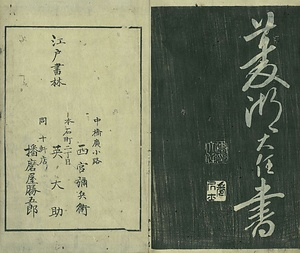 菱湖大任書
江戸書林
中橋廣小路
西宮彌兵衛
本石町二丁目
英大助
同十軒店
播磨屋勝五郎